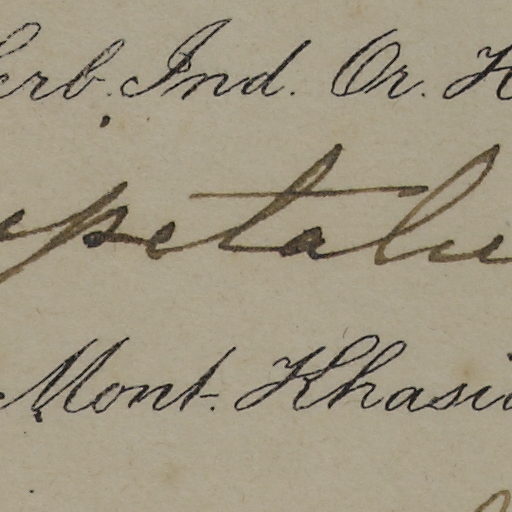 erb. Ind. Or. H
epetalu
Mont. Khasi